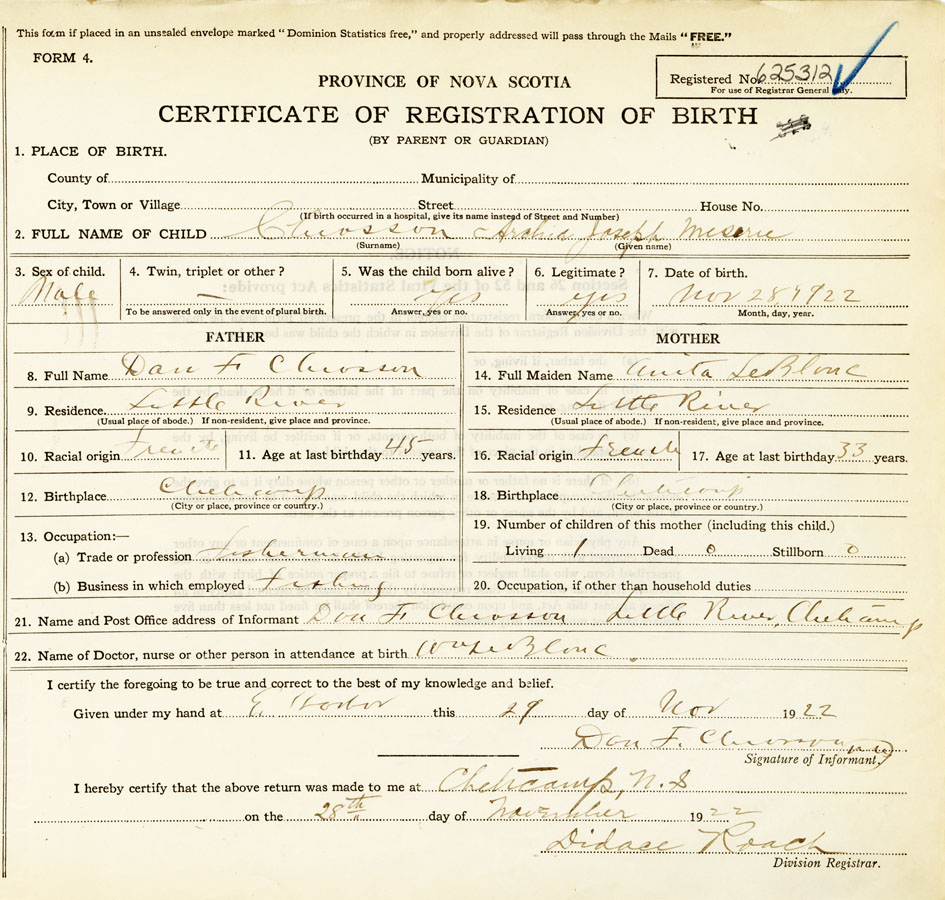 This form if placed in an unsealed envelope marked "Dominion Statistics free," and properly addressed will pass through the Mails "FREE."
FORM 4.
PROVINCE OF NOVA SCOTIA
Registered No. 625312
For use of Registrar General only.
CERTIFICATE OF REGISTRATION OF BIRTH
(BY PARENT OR GUARDIAN)
1. PLACE OF BIRTH.
County of Municipality of
City, Town or Village Street House No.
(If birth occurred in a hospital, give its name instead of Street and Number)
2. FULL NAME OF CHILD Chiasson Archid Joseph
(Surname) (Given name)
3. Sex of child. 4. Twin, triplet or other? 5. Was the child born alive? 6. Legitimate? 7. Date of birth.
Male — Yes yes Nov 28 1922
To be answered only in the event of plural birth. Answer, yes or no. Answer, yes or no. Month, day, year.
FATHER MOTHER
8. Full Name Dan F Chiasson 14. Full Maiden Name Anita LeBlanc
9. Residence Little River 15. Residence Little River
(Usual place of abode.) If non-resident, give place and province. (Usual place of abode.) If non-resident, give place and province.
10. Racial origin French 11. Age at last birthday 45 years. 16. Racial origin French 17. Age at last birthday 33 years.
12. Birthplace Cheticamp 18. Birthplace Cheticamp
(City or place, province or country.) (City or place, province or country.)
13. Occupation:— 19. Number of children of this mother (including this child.)
(a) Trade or profession fisherman Living 1 Dead 0 Stillborn 0
(b) Business in which employed fishing 20. Occupation, if other than household duties
21. Name and Post Office address of Informant Dan F Chiasson Little River, Cheticamp
22. Name of Doctor, nurse or other person in attendance at birth LeBlanc
I certify the foregoing to be true and correct to the best of my knowledge and belief.
Given under my hand at E. Harbor this 29 day of Nov 1922
Dan F. Chiasson
Signature of Informant.
I hereby certify that the above return was made to me at Cheticamp, N.S
on the 28th day of November 1922
Didace Roach
Division Registrar.